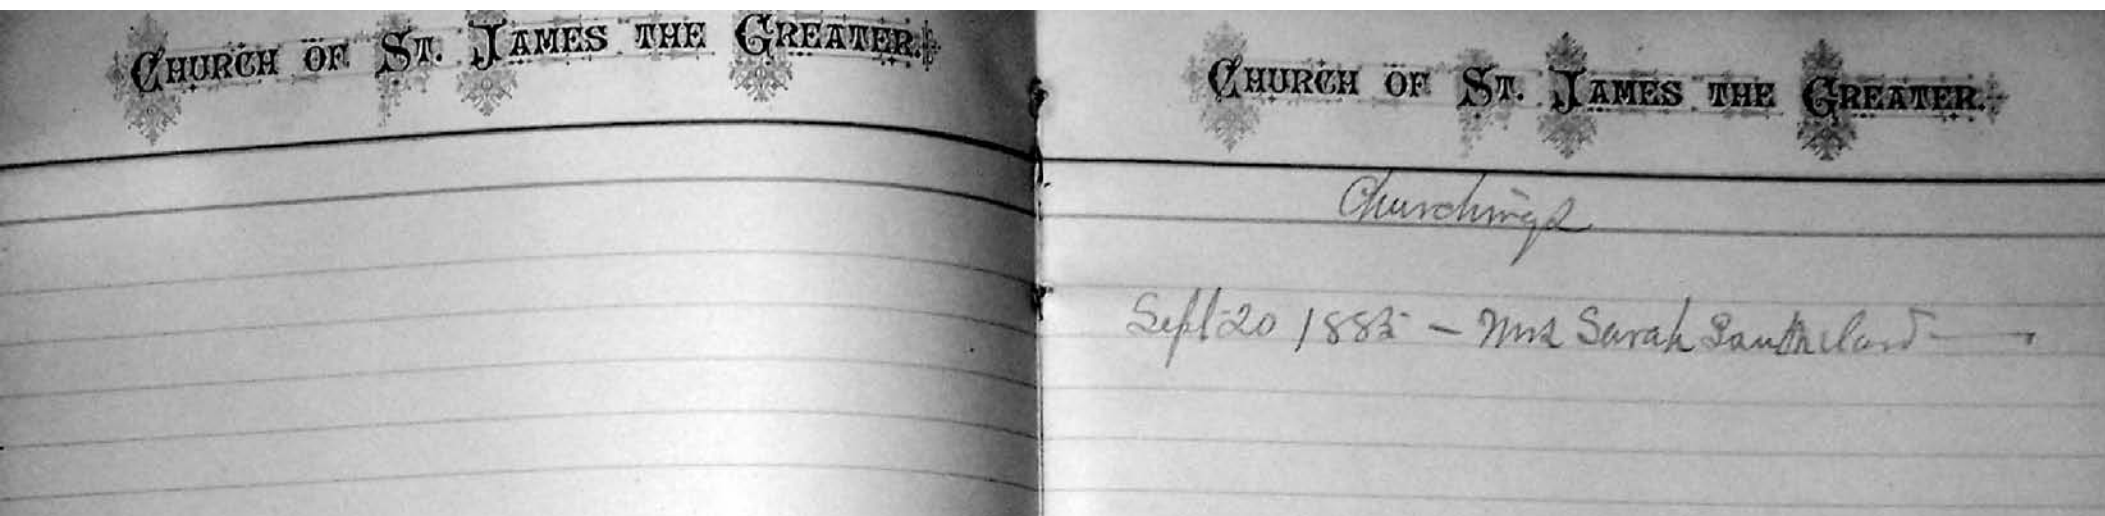 CHURCH OF ST. JAMES THE GREATER.
CHURCH OF ST. JAMES THE GREATER.
Churchings
Sept 20 1885 - Mrs Sarah